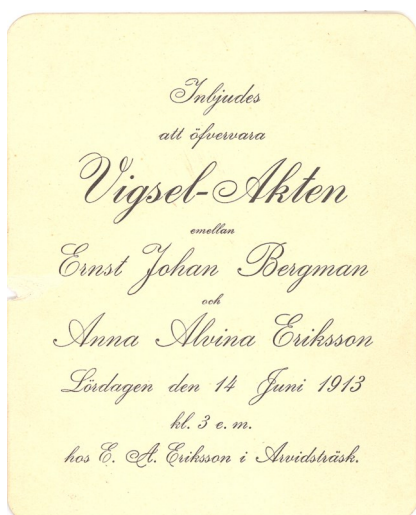 Inbjudes
att öfvervara
Vigsel-Akten
emellan
Ernst Johan Bergman
och
Anna Alvina Eriksson
Lördagen den 14 Juni 1913
kl. 3 e. m.
hos E. A. Eriksson i Arvidsträsk.